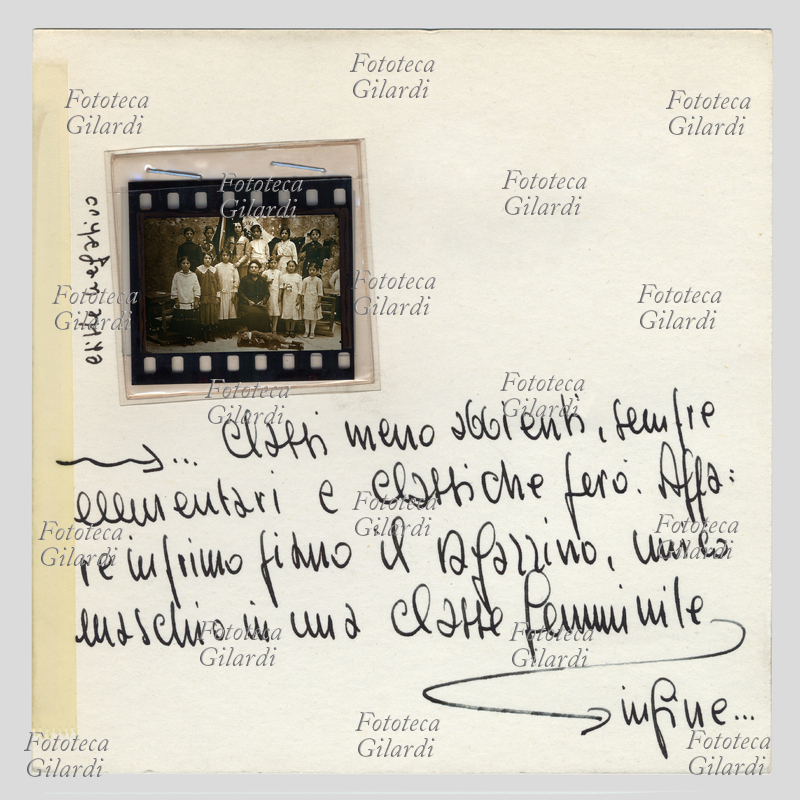 Fototeca
Gilardi
Fototeca
Gilardi
Fototeca
Gilardi
Fototeca
Gilardi
Fototeca
Gilardi
Fototeca
Gilardi
Fototeca
Gilardi
Fototeca
Gilardi
Fototeca
Gilardi
Fototeca
Gilardi
... Classi meno abbienti, sempre
elementari e classiche però. Appa:
Fototeca
Gilardi
Fototeca
Gilardi
Fototeca
Gilardi
re in primo piano il ragazzino, unico
maschio in una classe femminile
Fototeca
Gilardi
Fototeca
Gilardi
infine...
Fototeca
Gilardi
Fototeca
Gilardi
Fototeca
Gilardi